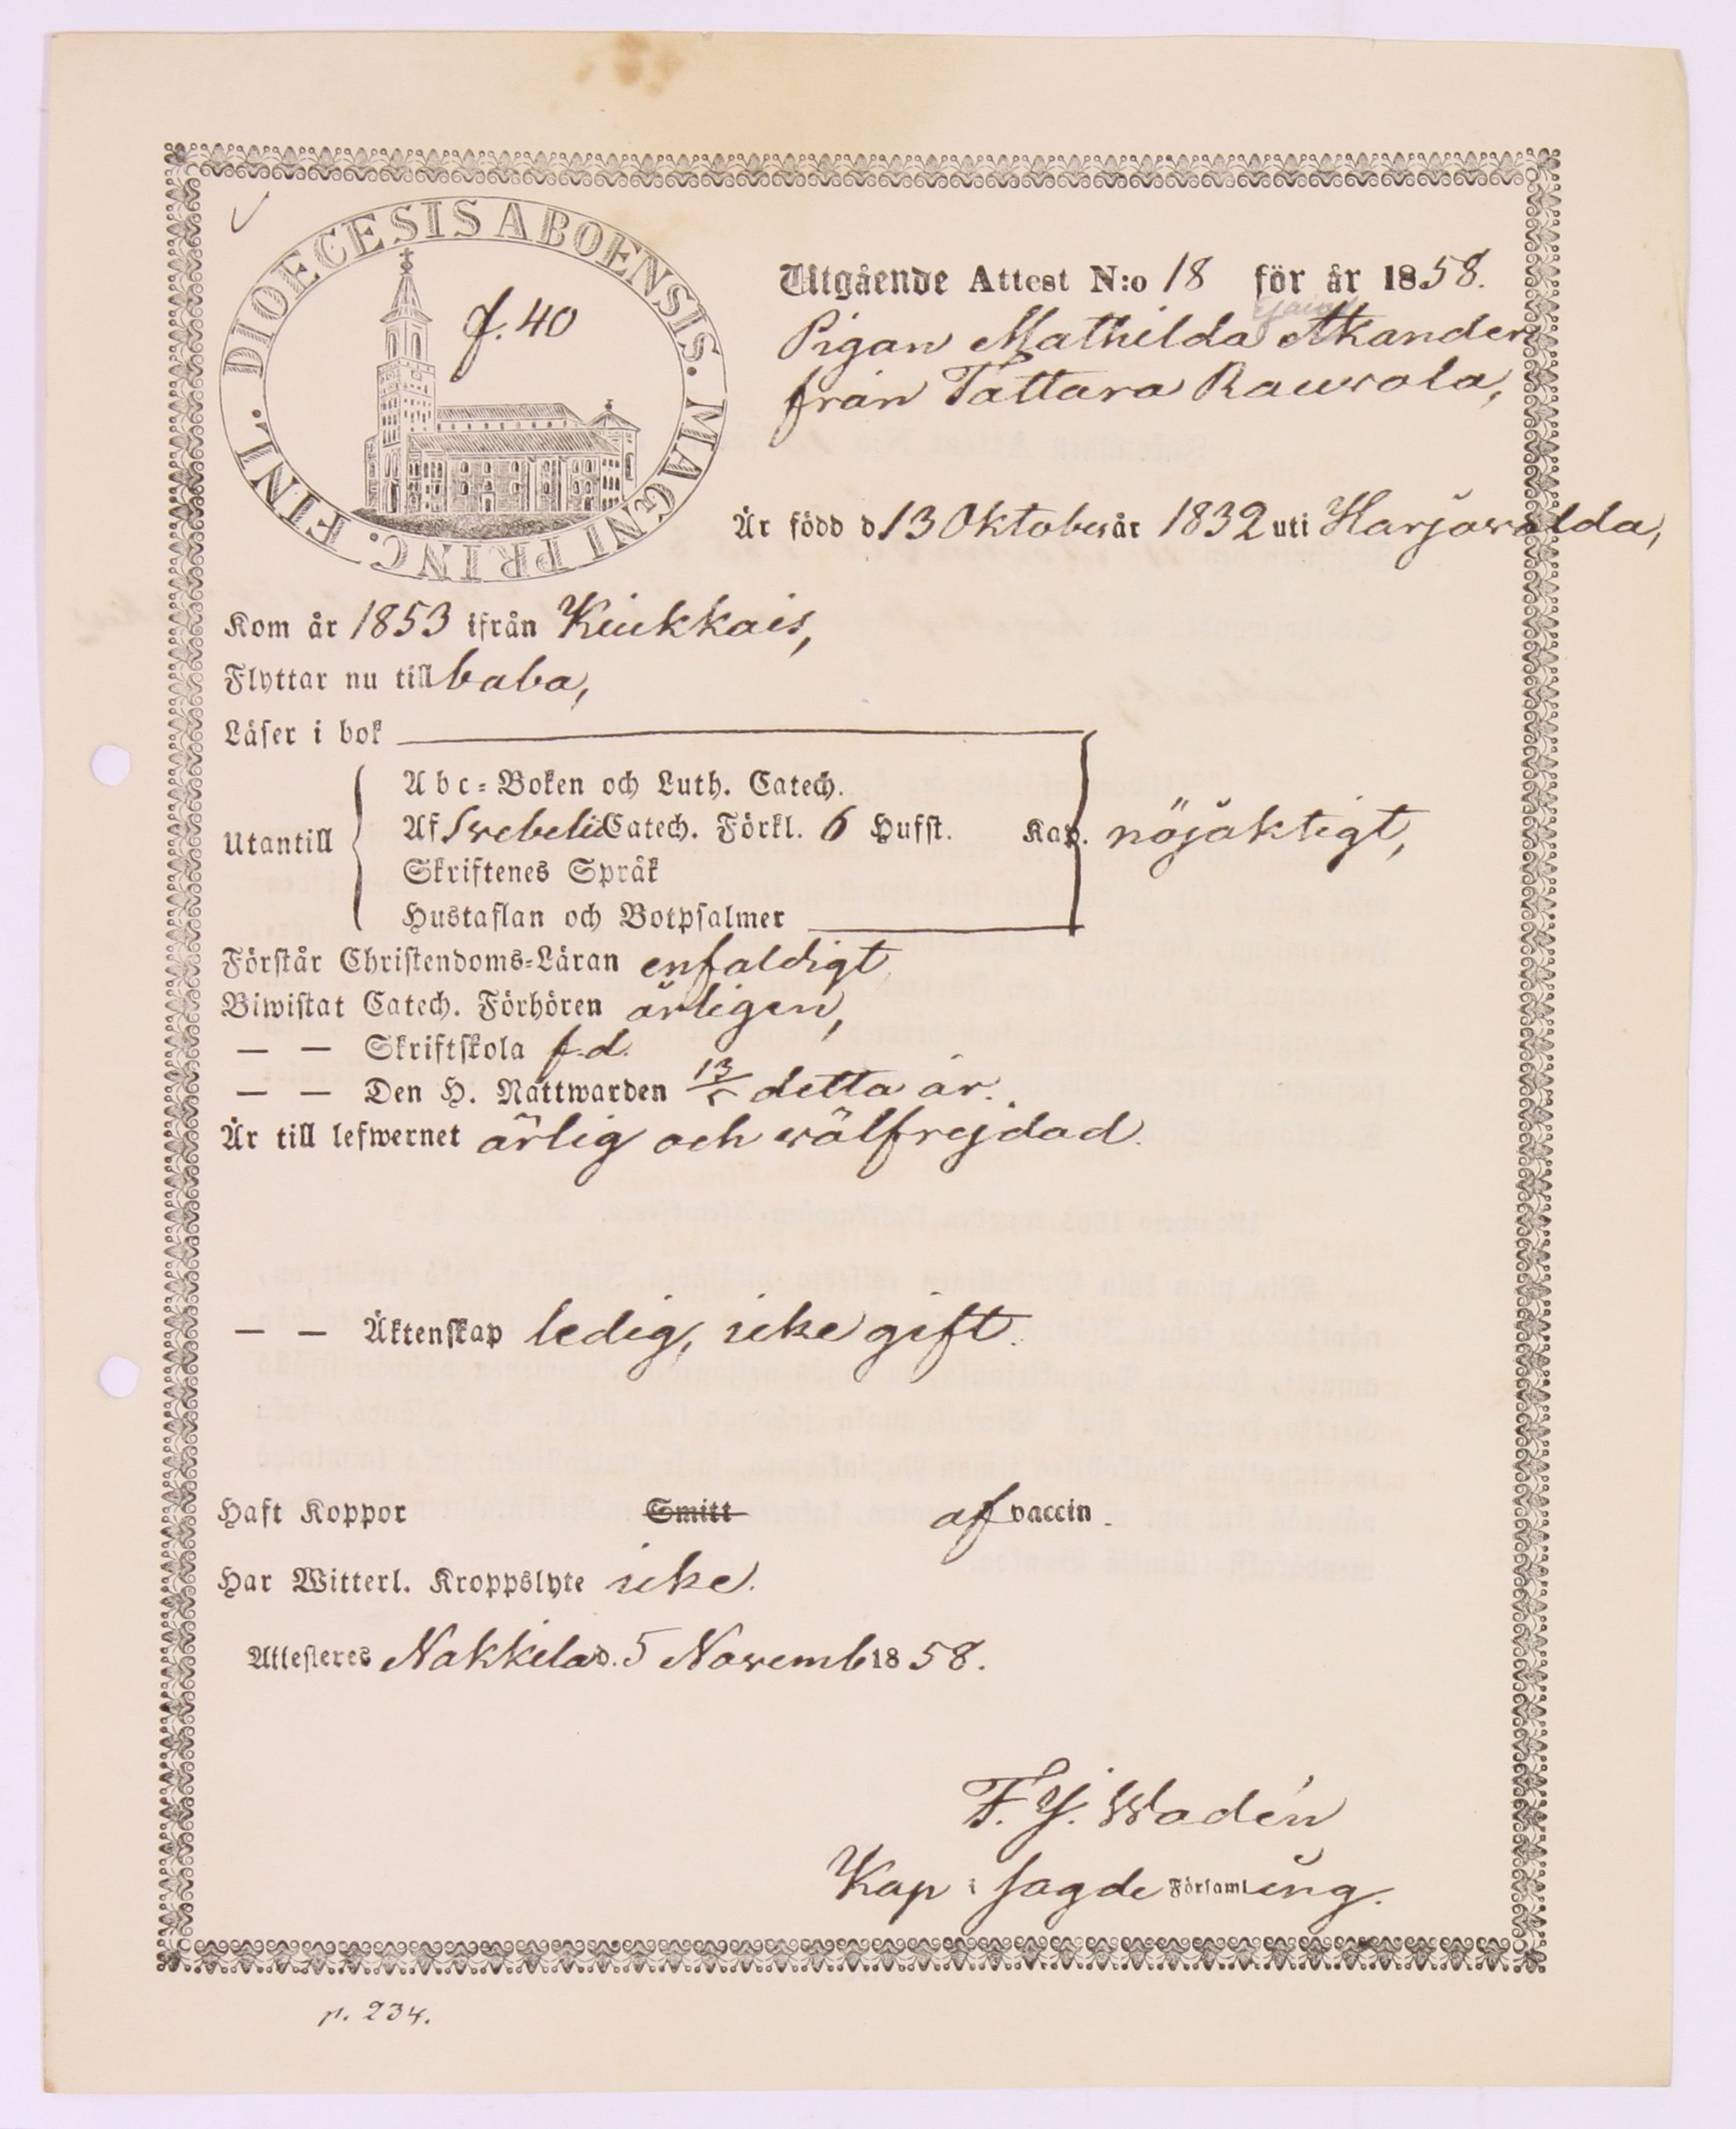 DIOECESIS ABOENSIS. MAGNI PRINC. FINL.
f. 40
Utgående Attest N:o 18 för år 1858.
Pigan Mathilda Akander
från Tattara Rauvola,
Är född d 13 Oktober år 1832 uti Harjavalda,
Kom år 1853 ifrån Kiukkais,
Flyttar nu till
Läser i bok
Abc-Boken och Luth. Catech.
Utantill Af Svebelii Catech. Förkl. 6 Hufst. Kap. nöjaktigt,
Skriftenes Språk
Hustaflan och Botpsalmer
Förstår Christendoms-Läran enfaldigt
Biwistat Catech. Förhören årligen,
— — Skriftskola f.d.
— — Den H. Nattwarden 13/5 detta år.
Är till lefwernet ärlig och välfrejdad.
— — Äktenskap ledig, icke gift.
Haft Koppor Smitt af vaccin.
Har Witterl. Kroppslyte icke.
Attesteres Nakkila d. 5 Novemb 1858.
F. J. Wadén
Kap i sagde Församling.
p. 234.